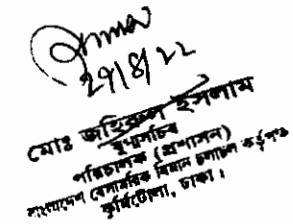 29/8/22
মোঃ জহিরুল ইসলাম
যুগ্মসচিব
পরিচালক (প্রশাসন)
বাংলাদেশ বেসামরিক বিমান চলাচল কর্তৃপক্ষ
কুর্মিটোলা, ঢাকা।